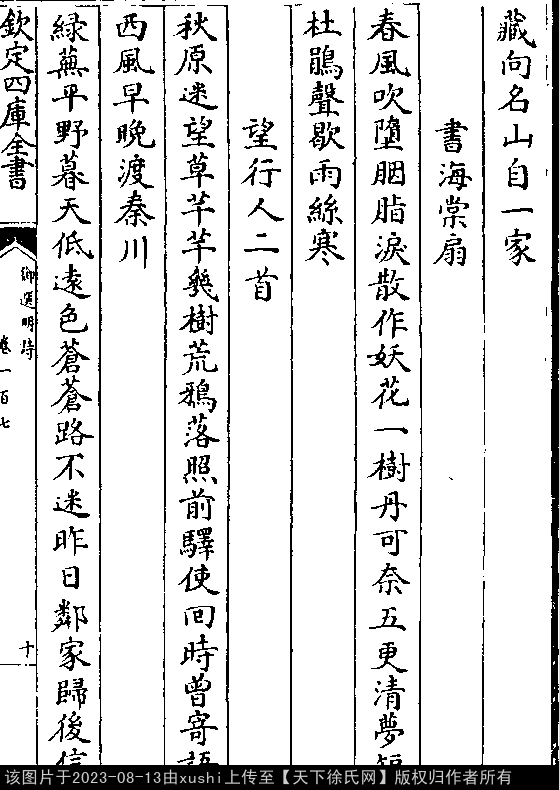 藏向名山自一家
書海棠扇
春風吹墮胭脂淚散作妖花一樹丹可奈五更清夢短
杜鵑聲歇雨絲寒
望行人二首
秋原迷望草芊芊幾樹荒鴉落照前驛使回時曾寄語
西風早晚渡秦川
緑蕪平野暮天低遠色蒼蒼路不迷昨日鄰家歸後信
欽定四庫全書
御選明詩
卷一百七
十
该图片于2023-08-13由xushi上传至【天下徐氏网】版权归作者所有